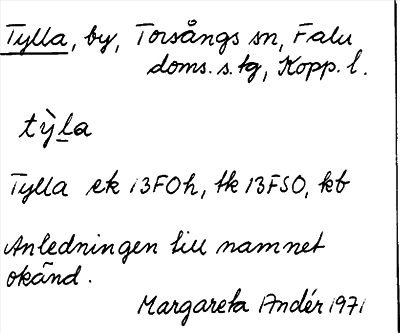 Tylla, by, Torsångs sn, Falu
doms. s. tg, Kopp. l.
tỳla
Tylla ek 13FOh, tk 13FSO, kb
Anledningen till namnet
okänd.
Margareta Andér 1971